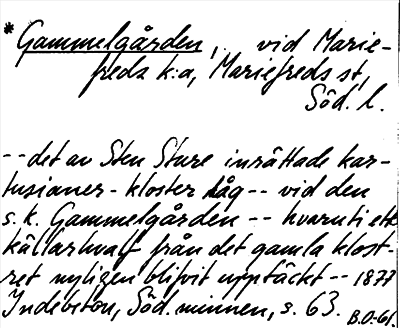 *Gammelgården, vid Marie-
freds k:a, Mariefreds st,
Söd. l.
-- det av Sten Sture inrättade kar-
tusianer-kloster låg -- vid den
s.k. Gammelgården -- hvaruti ett
källarhvalf från det gamla klost-
ret nyligen blifvit upptäckt -- 1877
Indebetou, Söd. minnen, s. 63. B.O-61.